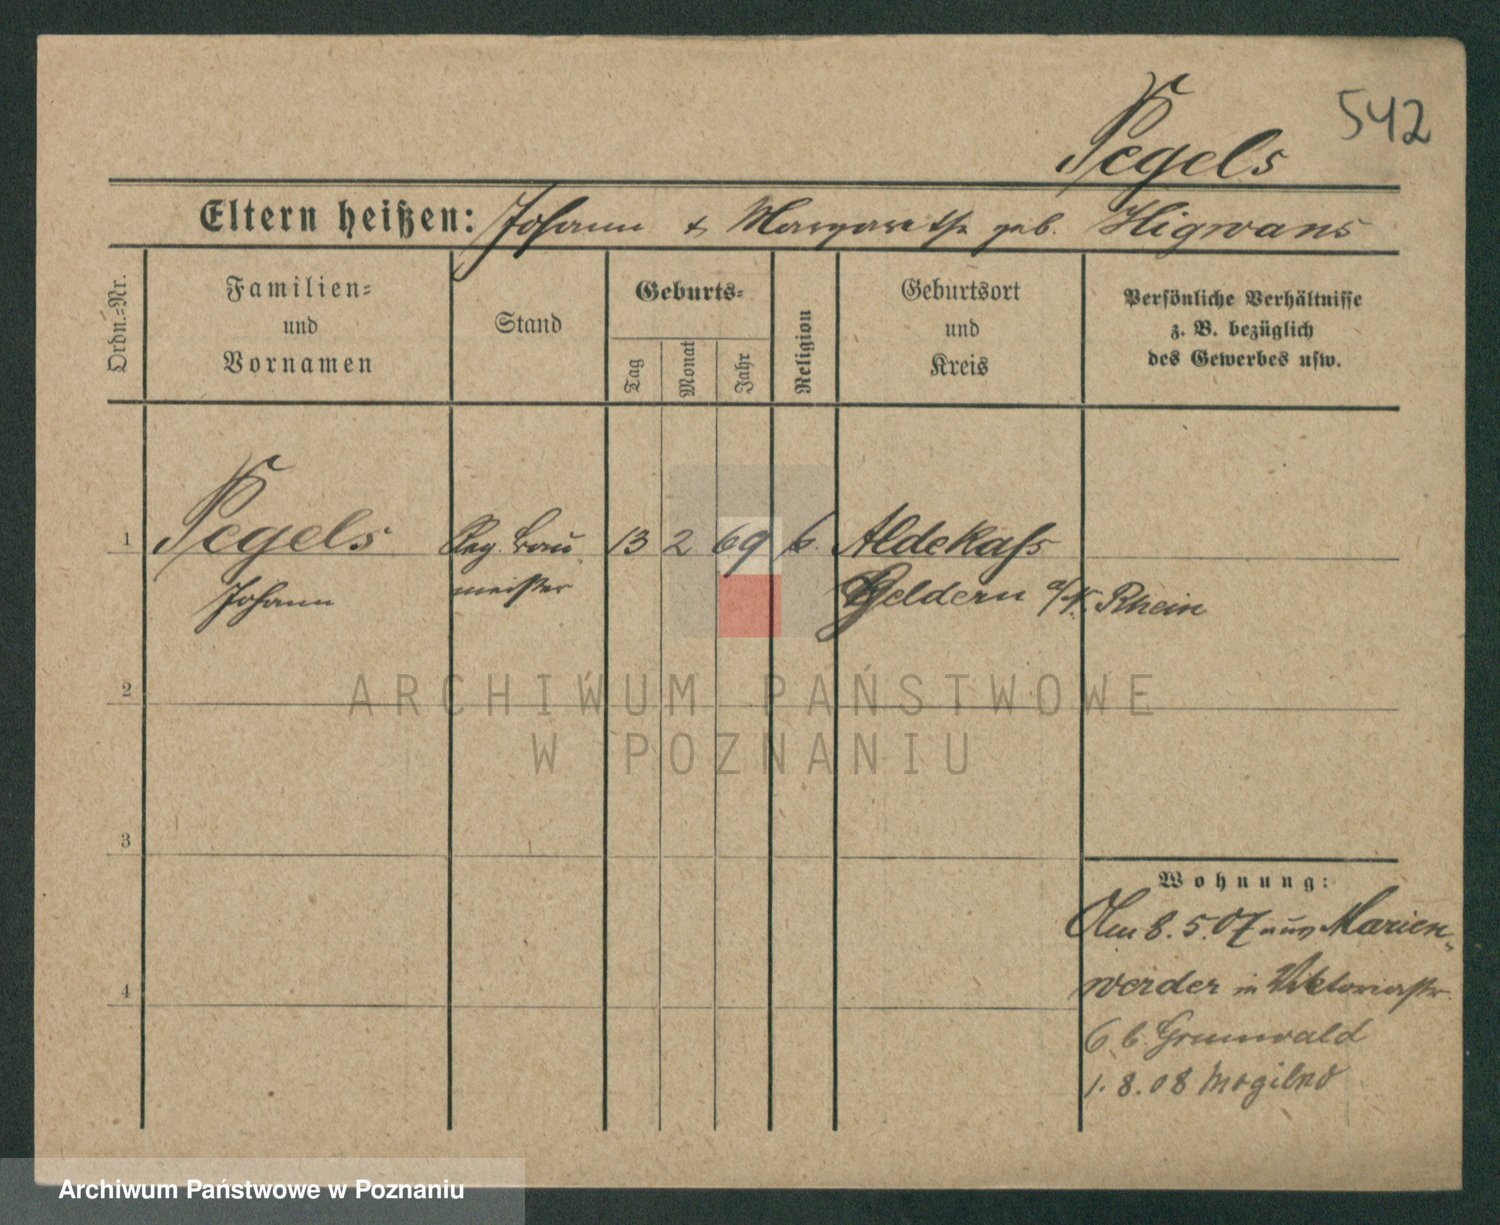 542
Pegels
Eltern heißen: Johann & Margarethe geb. Higwans
Ordn.-Nr.
Familien-
und
Vornamen
Stand
Geburts-
Tag
Monat
Jahr
Religion
Geburtsort
und
Kreis
Persönliche Verhältnisse
z. B. bezüglich
des Gewerbes usw.
1 Pegels Reg. Bau- 13 2 69 k. Aldekass
Johann meister Geldern a/N. Rhein
2
3
4
ARCHIWUM PAŃSTWOWE
W POZNANIU
Wohnung:
Am 8.5.07 aus Marien-
werder in Viktoriastr.
6 b. Grunwald
1.8.08 Mogilno
Archiwum Państwowe w Poznaniu